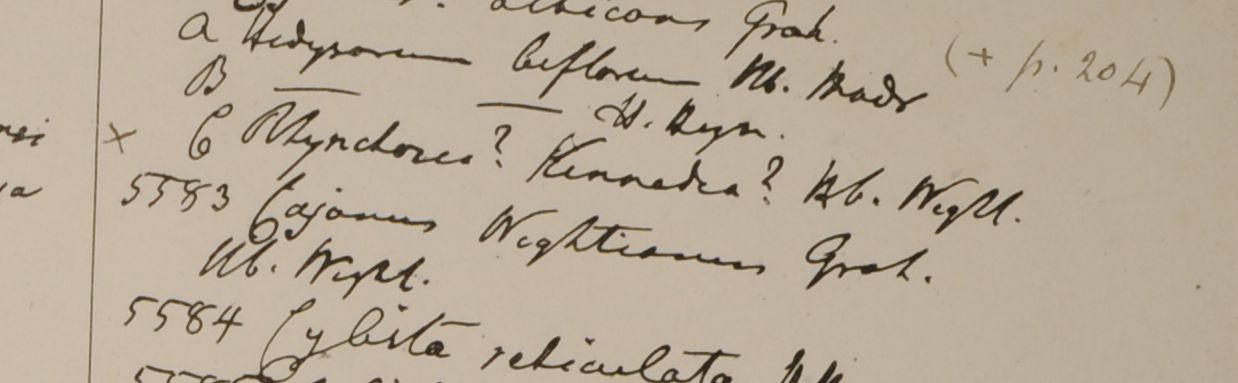 albicans Grah.
a Hedysarum biflorum Hb. Madr (+ p. 204)
B — — H. Heyn.
x C Rhynchosia? Kennedia? Hb. Wight.
5583 Cajanus Wightianus Grah.
Hb. Wight.
5584 Cylista reticulata